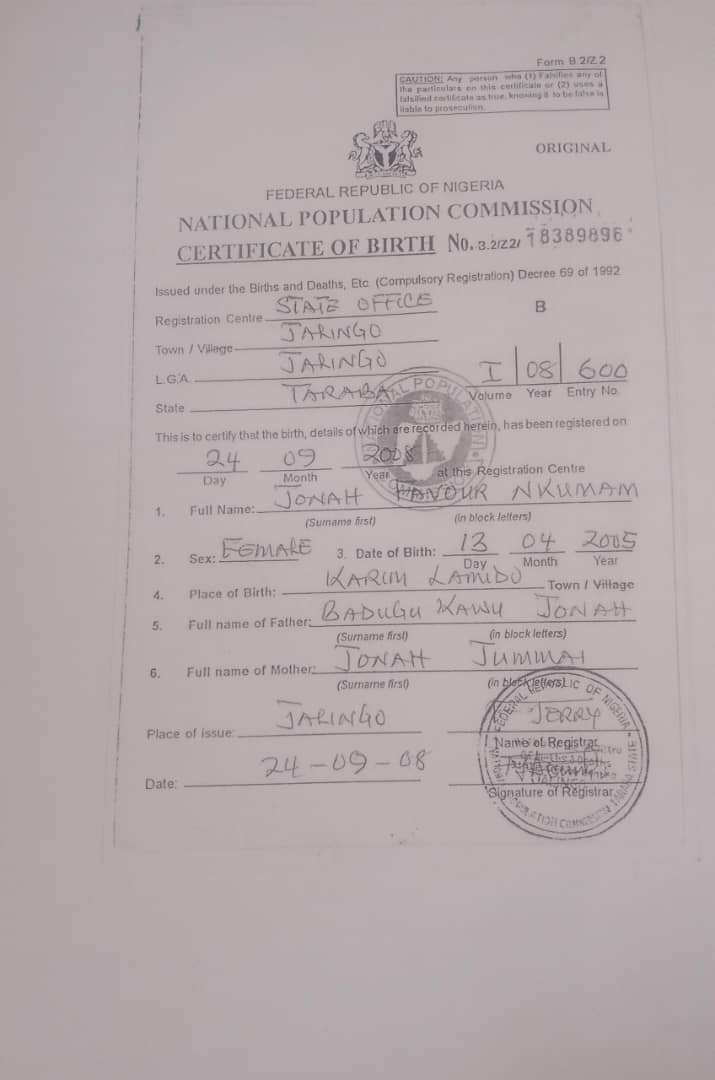 Form B.2/Z.2
CAUTION: Any person who (1) Falsifies any of
the particulars on this certificate or (2) uses a
falsified certificate as true, knowing it to be false is
liable to prosecution.
ORIGINAL
FEDERAL REPUBLIC OF NIGERIA
NATIONAL POPULATION COMMISSION
CERTIFICATE OF BIRTH No. B.2/Z2/ 18389896
Issued under the Births and Deaths, Etc. (Compulsory Registration) Decree 69 of 1992
Registration Centre STATE OFFICE B
Town / Village JARINGO
L.G.A. JARINGO I 08 600
State TARABA Volume Year Entry No.
This is to certify that the birth, details of which are recorded herein, has been registered on
24 09 2008 at this Registration Centre
Day Month Year
1. Full Name: JONAH NKUMAM
(Surname first) (in block letters)
2. Sex: FEMALE 3. Date of Birth: 13 04 2005
Day Month Year
4. Place of Birth: KARIM LAMIDO Town / Village
5. Full name of Father: BADUGU KAWU JONAH
(Surname first) (in block letters)
6. Full name of Mother: JONAH JUMMAI
(Surname first) (in block letters)
Place of issue: JARINGO JERRY
Name of Registrar
Date: 24-09-08
Signature of Registrar
FEDERAL REPUBLIC OF NIGERIA
NATIONAL POPULATION COMMISSION TARABA STATE